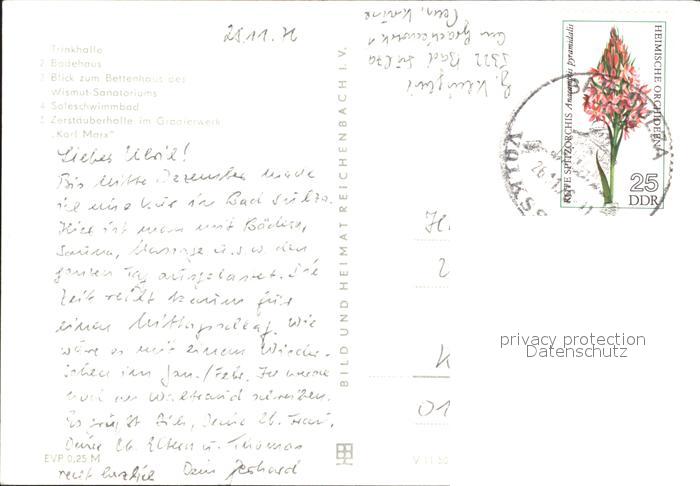 Trinkhalle
2 Badehaus
3 Blick zum Bettenhaus des
Wismut-Sanatoriums
4 Soleschwimmbad
5 Zerstäuberhalle im Gradierwerk
„Karl Marx"
Lieber Ulrich!
Bis Mitte Dezember mache
ich eine Kur in Bad Sulza.
Hier ist man mit Bädern,
Sauna, Massage u.s.w. den
ganzen Tag ausgelastet. Die
Zeit reicht kaum für
einen Mittagsschlaf. Wie
wäre es mit einem Wieder-
sehen im Jan./Febr. Ich werde
noch an schreiben.
Es grüßt Dich, Deine lb. Frau,
Deine lb. Eltern u. Thomas
recht herzlich Dein Gerhard
EVP 0,25 M
BILD UND HEIMAT REICHENBACH I. V.
V 11 50
5322 Bad Sulza
HEIMISCHE ORCHIDEEN
ROTE SPITZORCHIS Anacamptis pyramidalis
25
DDR
BAD SULZA
privacy protection
Datenschutz
K
01